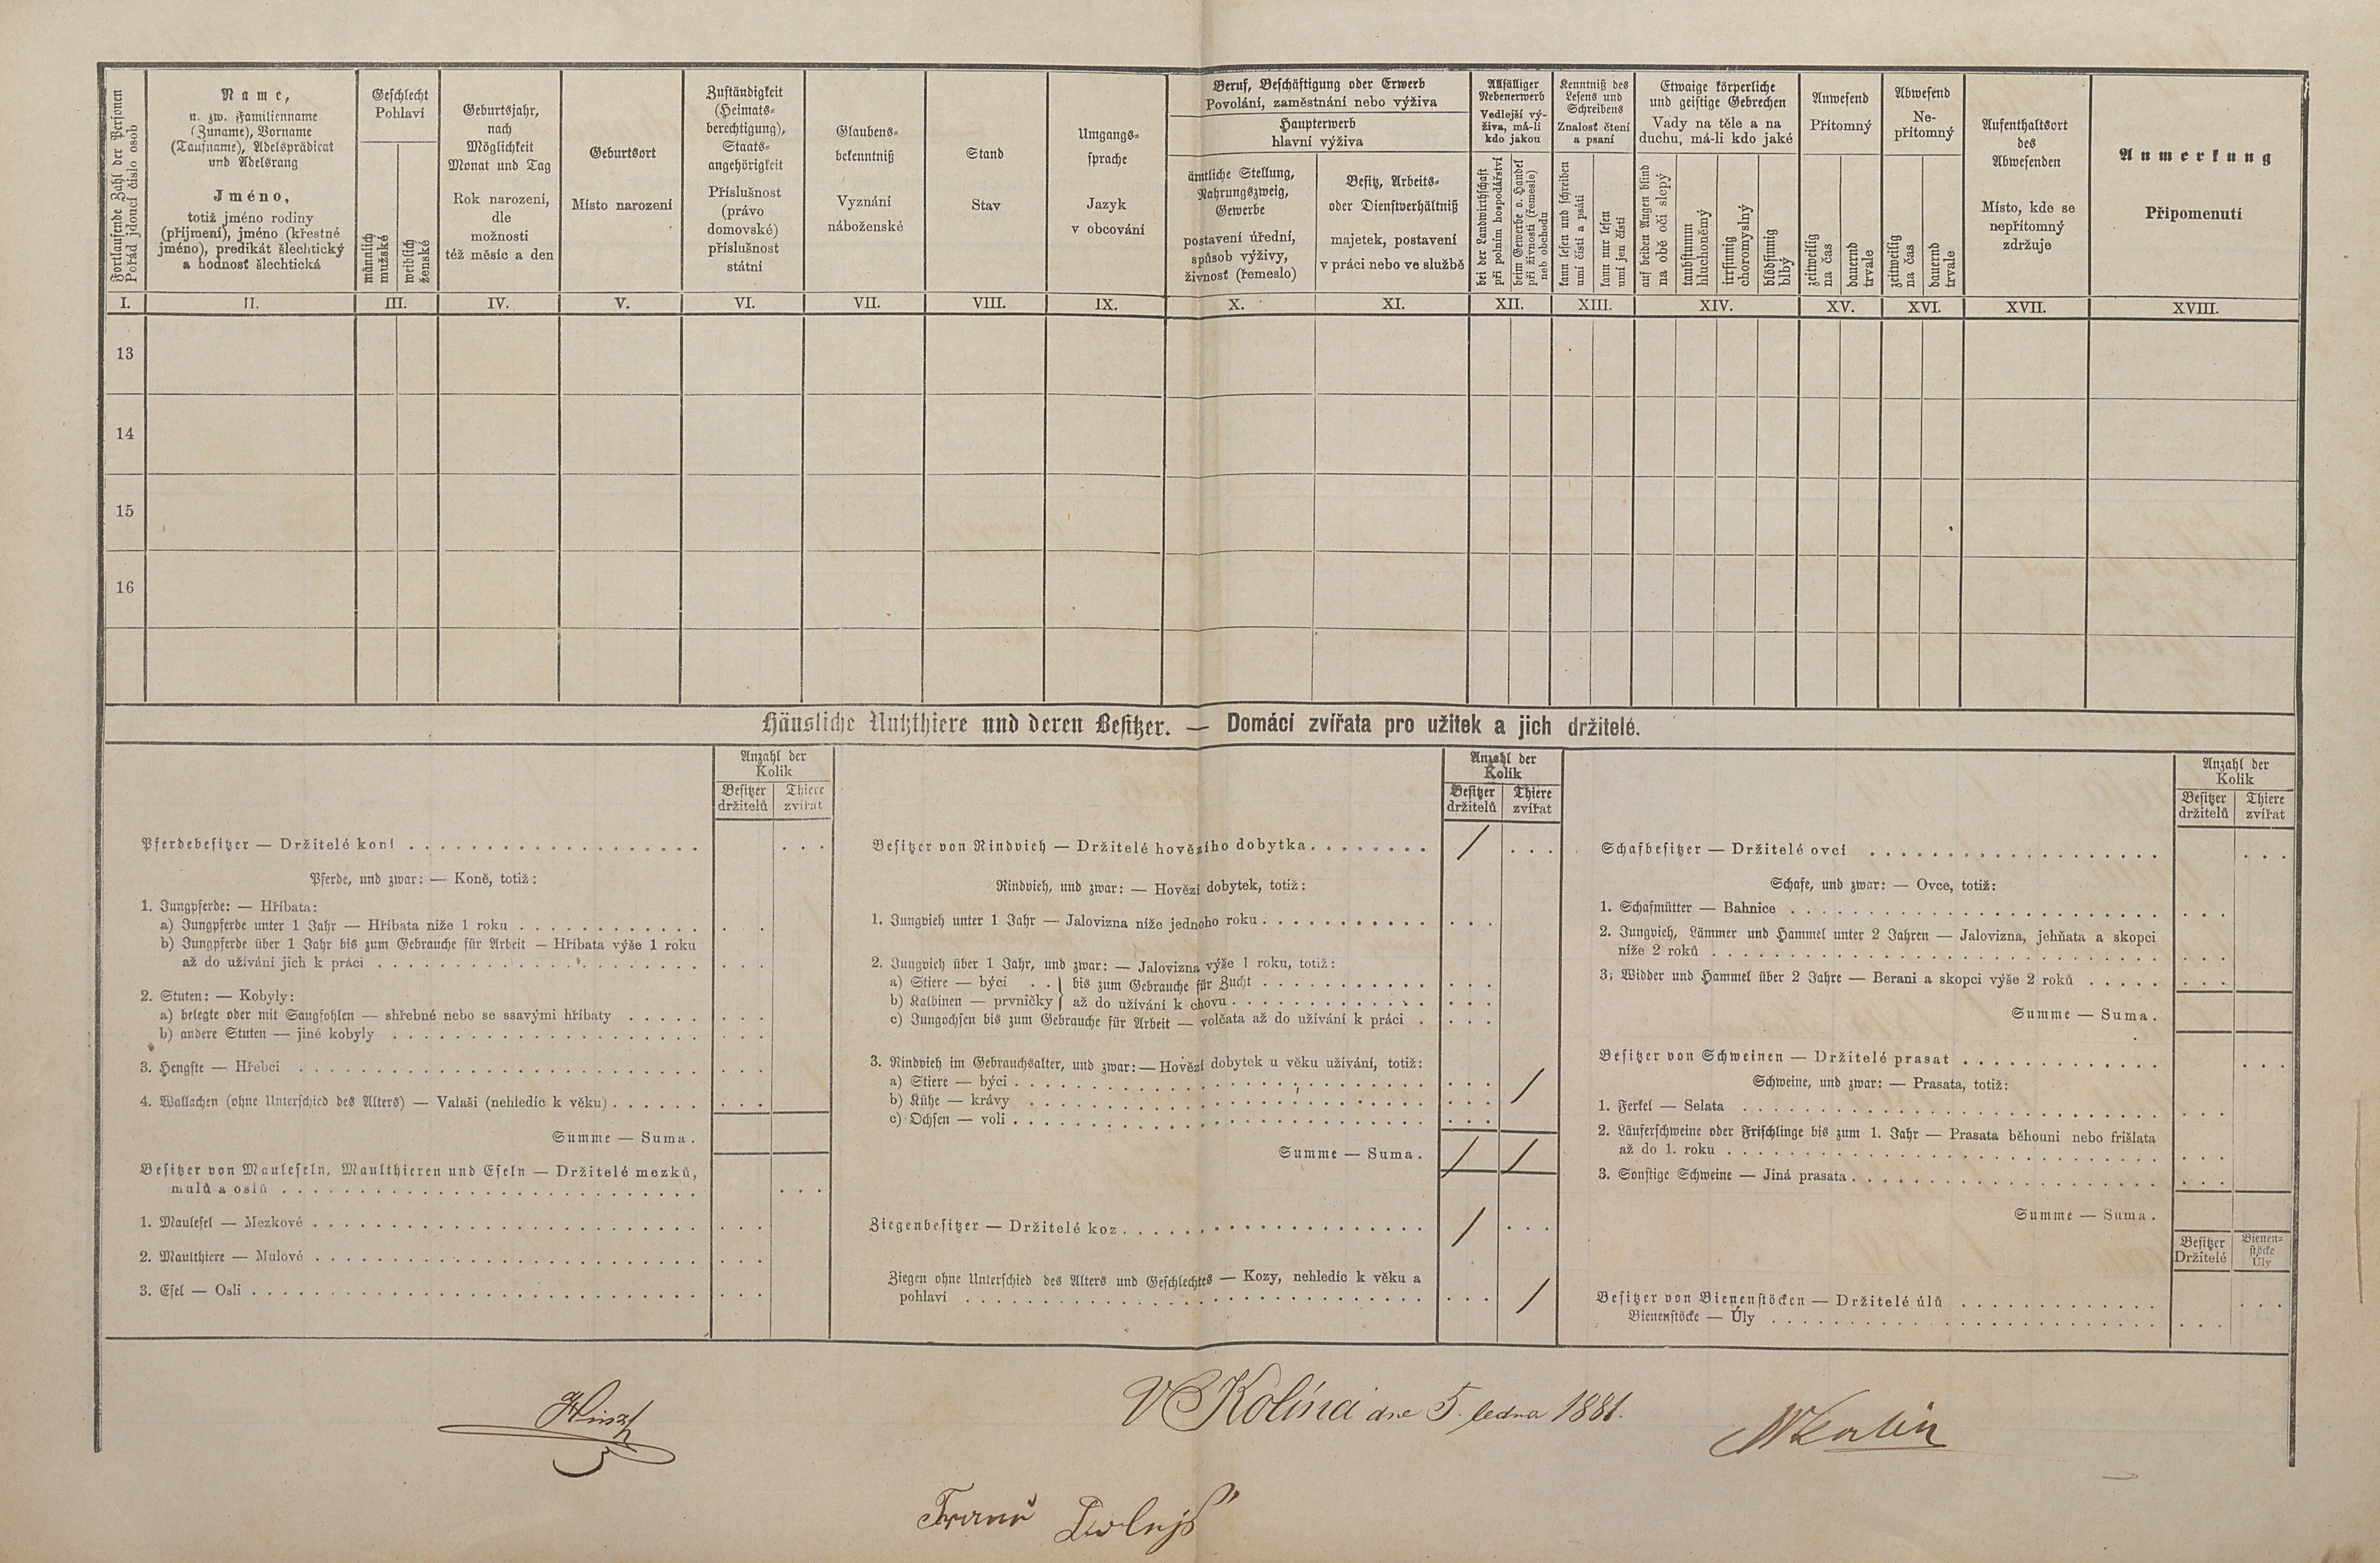 Fortlaufende Zahl der Personen
Pořád jdoucí číslo osob
Name,
u. zw. Familienname
(Zuname), Vorname
(Taufname), Adelsprädicat
und Adelsrang
Jméno,
totiž jméno rodiny
(příjmení), jméno (křestné
jméno), predikát šlechtický
a hodnost šlechtická
Geschlecht
Pohlaví
männlich
mužské
weiblich
ženské
Geburtsjahr,
nach
Möglichkeit
Monat und Tag
Rok narození,
dle
možnosti
též měsíc a den
Geburtsort
Místo narození
Zuständigkeit
(Heimats-
berechtigung),
Staats-
angehörigkeit
Příslušnost
(právo
domovské)
příslušnost
státní
Glaubens-
bekenntniß
Vyznání
náboženské
Stand
Stav
Umgangs-
sprache
Jazyk
v obcování
Beruf, Beschäftigung oder Erwerb
Povolání, zaměstnání nebo výživa
Haupterwerb
hlavní výživa
ämtliche Stellung,
Nahrungszweig,
Gewerbe
postavení úřední,
spůsob výživy,
živnost (řemeslo)
Besitz, Arbeits-
oder Dienstverhältniß
majetek, postavení
v práci nebo ve službě
Allfälliger
Nebenerwerb
Vedlejší vý-
živa, má-li
kdo jakou
bei der Landwirthschaft
při polním hospodářství
beim Gewerbe o. Handel
při živnosti (řemesle)
neb obchodu
Kenntniß des
Lesens und
Schreibens
Znalost čtení
a psaní
kann lesen und schreiben
umí čísti a psáti
kann nur lesen
umí jen čísti
Etwaige körperliche
und geistige Gebrechen
Vady na těle a na
duchu, má-li kdo jaké
auf beiden Augen blind
na obě oči slepý
taubstumm
hluchoněmý
irrsinnig
choromyslný
blödsinnig
blbý
Anwesend
Přítomný
zeitweilig
na čas
dauernd
trvale
Abwesend
Ne-
přítomný
zeitweilig
na čas
dauernd
trvale
Aufenthaltsort
des
Abwesenden
Místo, kde se
nepřítomný
zdržuje
Anmerkung
Připomenutí
I. II. III. IV. V. VI. VII. VIII. IX. X. XI. XII. XIII. XIV. XV. XVI. XVII. XVIII.
13
14
15
16
Häusliche Nutzthiere und deren Besitzer. — Domácí zvířata pro užitek a jich držitelé.
Anzahl der
Kolik
Besitzer Thiere
držitelů zvířat
Pferdebesitzer — Držitelé koní
Pferde, und zwar: — Koně, totiž:
1. Jungpferde: — Hříbata:
a) Jungpferde unter 1 Jahr — Hříbata níže 1 roku
b) Jungpferde über 1 Jahr bis zum Gebrauche für Arbeit — Hříbata výše 1 roku
až do užívání jich k práci
2. Stuten: — Kobyly:
a) belegte oder mit Saugfohlen — shřebné nebo se ssavými hříbaty
b) andere Stuten — jiné kobyly
3. Hengste — Hřebci
4. Wallachen (ohne Unterschied des Alters) — Valaši (nehledíc k věku)
Summe — Suma.
Besitzer von Mauleseln, Maulthieren und Eseln — Držitelé mezků,
mulů a oslů
1. Maulesel — Mezkové
2. Maulthiere — Mulové
3. Esel — Osli
Anzahl der
Kolik
Besitzer Thiere
držitelů zvířat
Besitzer von Rindvieh — Držitelé hovězího dobytka /
Rindvieh, und zwar: — Hovězí dobytek, totiž:
1. Jungvieh unter 1 Jahr — Jalovizna níže jednoho roku
2. Jungvieh über 1 Jahr, und zwar: — Jalovizna výše 1 roku, totiž:
a) Stiere — býci . . } bis zum Gebrauche für Zucht
b) Kalbinen — prvničky } až do užívání k chovu
c) Jungochsen bis zum Gebrauche für Arbeit — volčata až do užívání k práci
3. Rindvieh im Gebrauchsalter, und zwar: — Hovězí dobytek u věku užívání, totiž:
a) Stiere — býci
b) Kühe — krávy /
c) Ochsen — voli
Summe — Suma. / /
Ziegenbesitzer — Držitelé koz /
Ziegen ohne Unterschied des Alters und Geschlechtes — Kozy, nehledíc k věku a
pohlaví /
Anzahl der
Kolik
Besitzer Thiere
držitelů zvířat
Schafbesitzer — Držitelé ovcí
Schafe, und zwar: — Ovce, totiž:
1. Schafmütter — Bahnice
2. Jungvieh, Lämmer und Hammel unter 2 Jahren — Jalovizna, jehňata a skopci
níže 2 roků
3. Widder und Hammel über 2 Jahre — Berani a skopci výše 2 roků
Summe — Suma.
Besitzer von Schweinen — Držitelé prasat
Schweine, und zwar: — Prasata, totiž:
1. Ferkel — Selata
2. Läuferschweine oder Frischlinge bis zum 1. Jahr — Prasata běhouni nebo frišlata
až do 1. roku
3. Sonstige Schweine — Jiná prasata
Summe — Suma.
Besitzer Bienen-
Držitelé stöcke
Úly
Besitzer von Bienenstöcken — Držitelé úlů
Bienenstöcke — Úly
V Kolínci dne 5. ledna 1881.